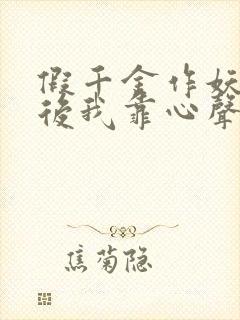 假千金作妖
後我靠心聲
焦菊隐